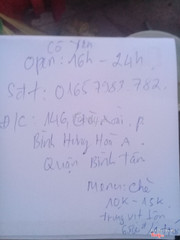 Cô Yến
Open: 16h - 24h
Sđt: 01657087 782
Đ/C: 14G Chiến Lược P
Bình Hưng Hoà A
Quận Bình Tân
Menu: chè
10K - 15K
trứng vịt lộn